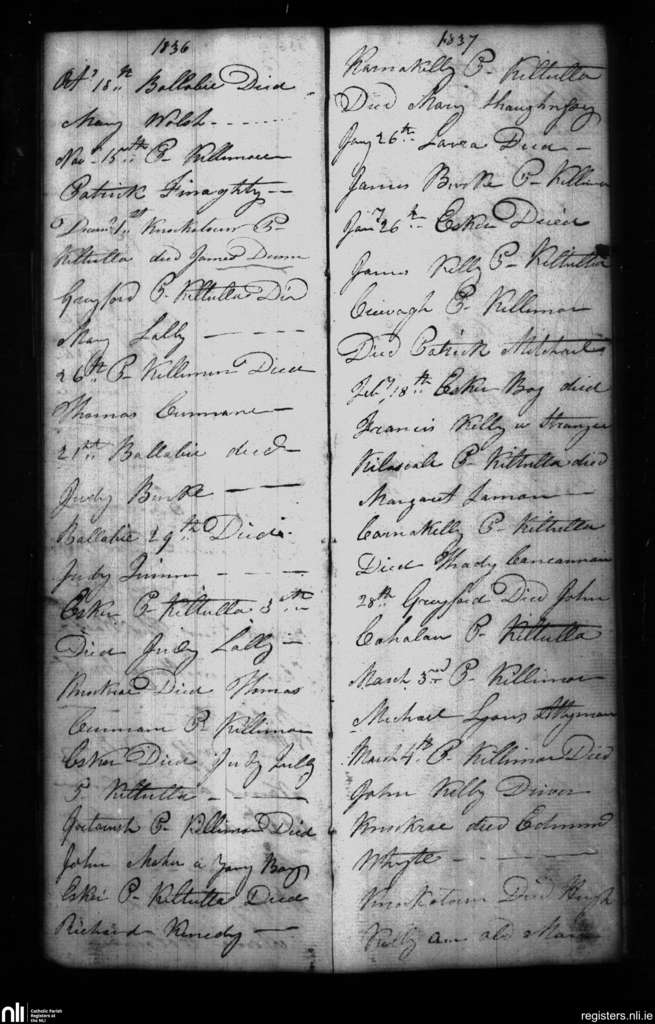 1836
Octr 18th Ballabie Died
Mary Walsh
Novr 15th P- Killimore
Patrick Finaghty
1st Knocketoum P-
Kiltulla died James Dunn
Grayford P- Kiltulla Did
Mary Lally
26th P- Killimore Died
Thomas Cunnane
21st Ballabie died
Judy Burke
Ballabie 29th Died
Judy Quinn
Esker P- Kiltulla 3th
Died Judy Lally
Knockrae Died Thomas
Cunnane P- Killimore
Esker Died Judy Lully
5 Kiltulla
P- Killimore Died
John Meher a Yong Boy
Esker P- Kiltulla Died
Richard Kenedy
1837
Karnakelly P- Kiltulla
Died Mary Shaughnesy
Jany 26th Lavea Died
James Burke P- Killimor
Jany 26th Esker Died
James Kelly P- Kiltulla
P- Killimor
Died Patrick Mitchael
Feby 18th Esker Boy died
Francis Kelly a Stranger
P- Kiltulla died
Margaret Lamon
Carnakelly P- Kiltulla
Died Thady Concannan
28th Grayford Died John
Cahalan P- Kiltulla
March 3rd P- Killimor
Michael Lyons
March 4th P- Killimor Died
John Kelly Driver
Knockrae died Edmund
Whyte
Knocketoum Died Hugh
Kelly an old Man
nli
Catholic Parish
Registers at
the NLI
registers.nli.ie